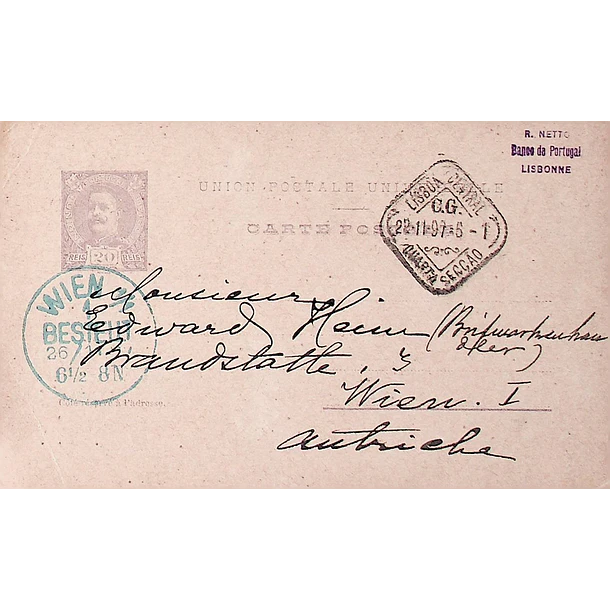 R. NETTO
Banco de Portugal
LISBONNE
UNION POSTALE UNIVERSELLE
CARTE POSTALE
LISBOA CENTRAL
C.G.
22-11-97-6-1
QUARTA SECÇÃO
REIS 20 REIS
WIEN
BESTELLT
26
6½ 8N
Monsieur
Edward Heim (Briefmarkenhändler)
Brandstätte, 3
Wien. I
Autriche
Côté réservé à l'adresse.